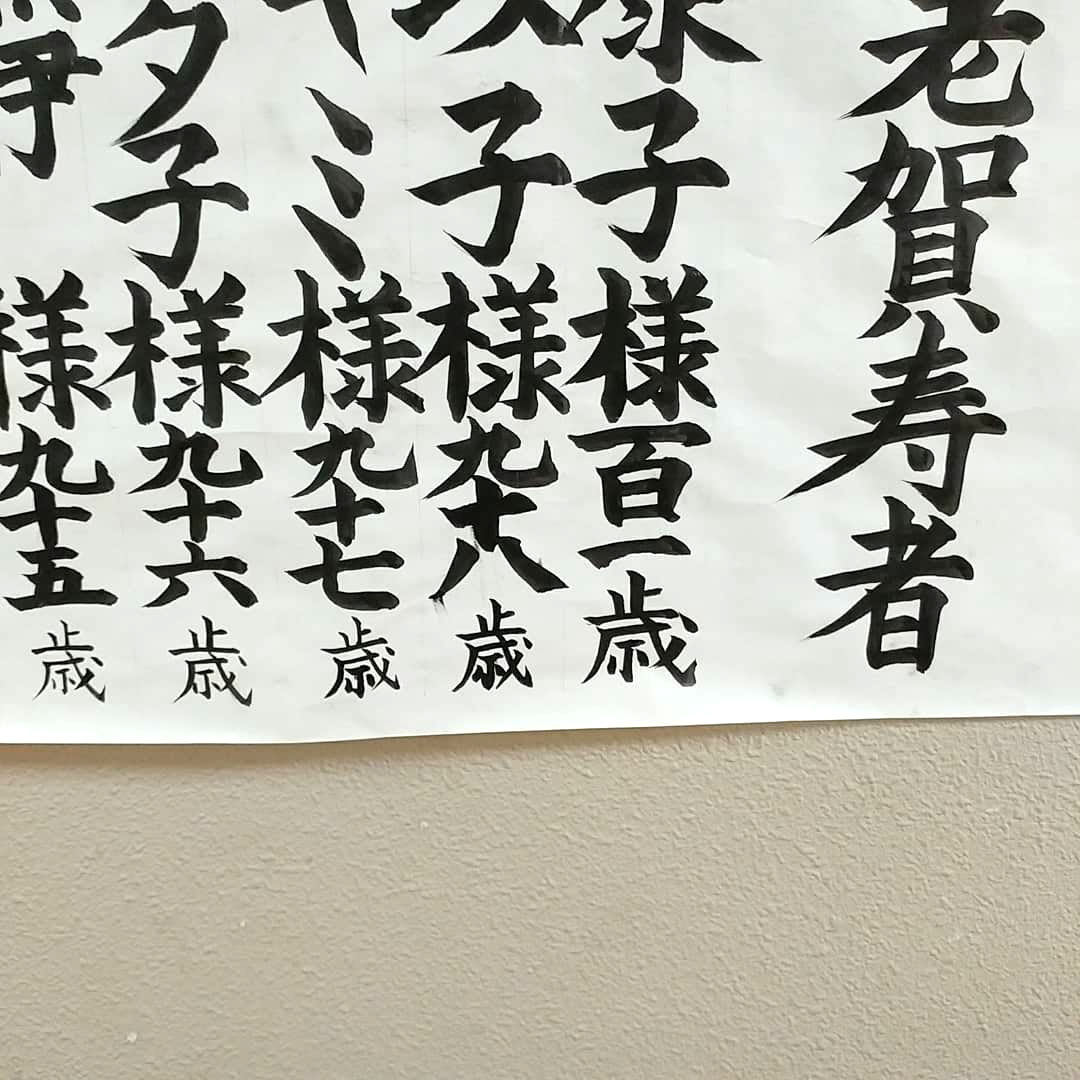 老賀寿者
子様百一歳
子様九十八歳
ミ様九十七歳
タ子様九十六歳
様九十五歳